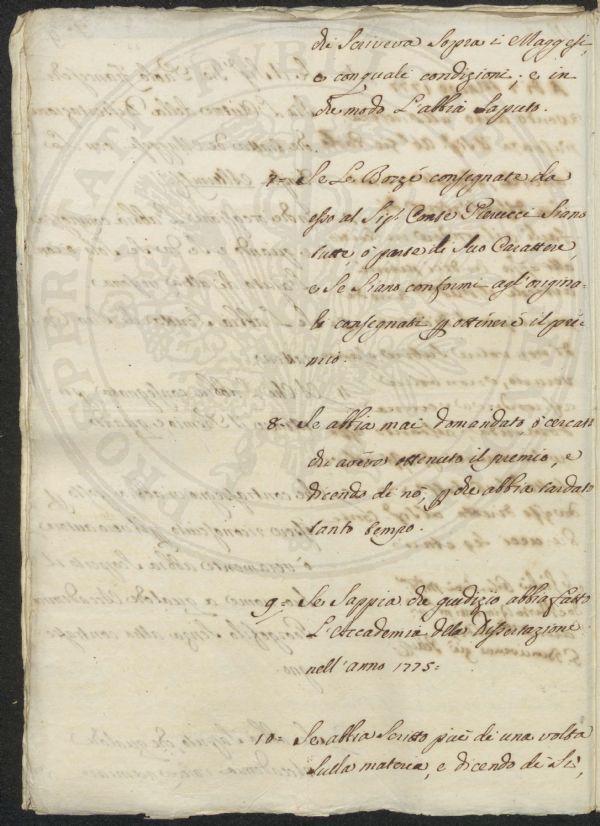 di Scriverà Sopra i Maggesi,
e con quali condizioni; e in
che modo L'abbia Saputo.
7= Se Le Bozze consegnate da
esso al Sigr Conte Pierucci Siano
tutte, ò parte di Suo Carattere,
e Se Siano conformi agl'origina-
le consegnati p ottenere il pre-
mio.
8= Se abbia mai domandato ò cercato
di avere ottenuto il premio, e
dicendo di nò, p che abbia tardato
tanto tempo.
9= Se Sappia che giudizio abbia fatto
L'Accademia della Dissertazione
nell'anno 1775=
10= Se abbia Scritto più di una volta
Sulla materia, e dicendo di Sì,
PROSPERITATI PUBLICAE